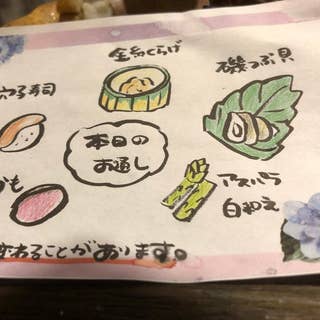 金糸くらげ
磯つぶ貝
穴子寿司
本日の
お通し
アスパラ
白和え
も
変わることがあります。